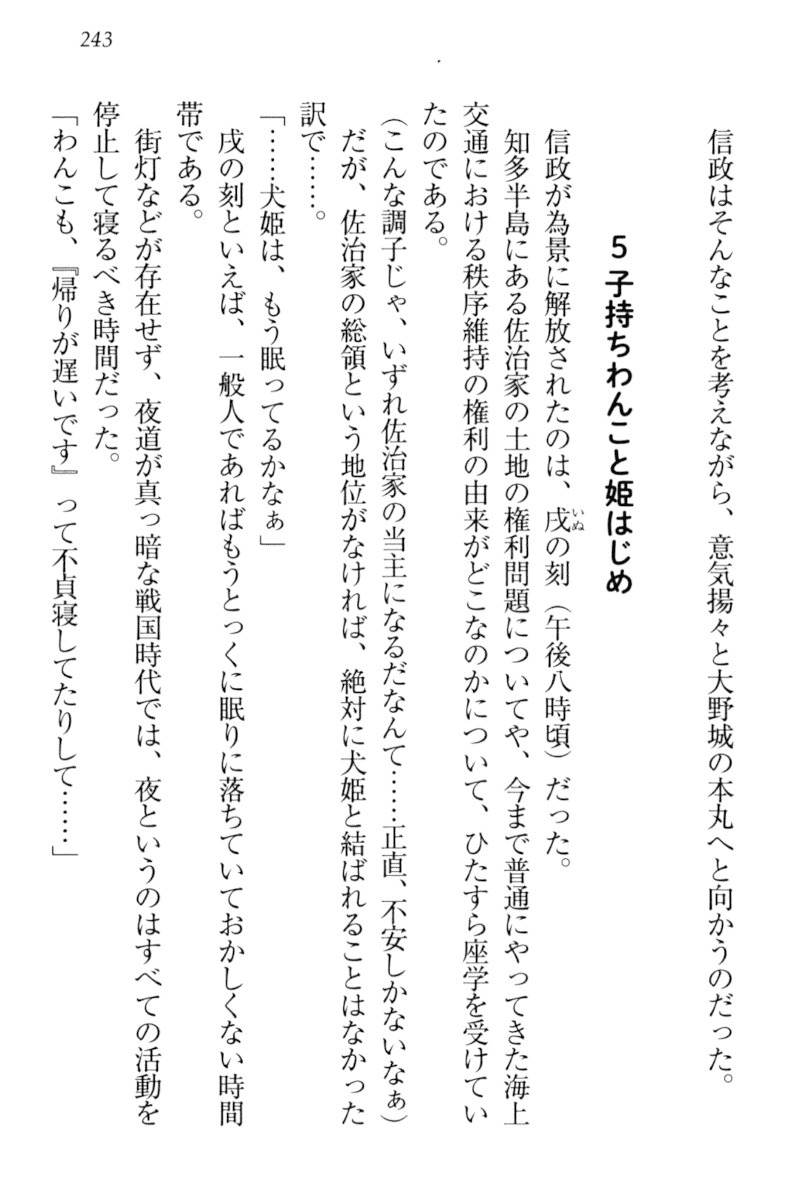 243
信政はそんなことを考えながら、意気揚々と大野城の本丸へと向かうのだった。
5 子持ちわんこと姫はじめ
信政が為景に解放されたのは、戌の刻（午後八時頃）だった。
いぬ
知多半島にある佐治家の土地の権利問題についてや、今まで普通にやってきた海上
交通における秩序維持の権利の由来がどこなのかについて、ひたすら座学を受けてい
たのである。
（こんな調子じゃ、いずれ佐治家の当主になるだなんて……正直、不安しかないなぁ）
だが、佐治家の総領という地位がなければ、絶対に犬姫と結ばれることはなかった
訳で……。
「……犬姫は、もう眠ってるかなぁ」
戌の刻といえば、一般人であればもうとっくに眠りに落ちていておかしくない時間
帯である。
街灯などが存在せず、夜道が真っ暗な戦国時代では、夜というのはすべての活動を
停止して寝るべき時間だった。
「わんこも、『帰りが遅いです』って不貞寝してたりして……」